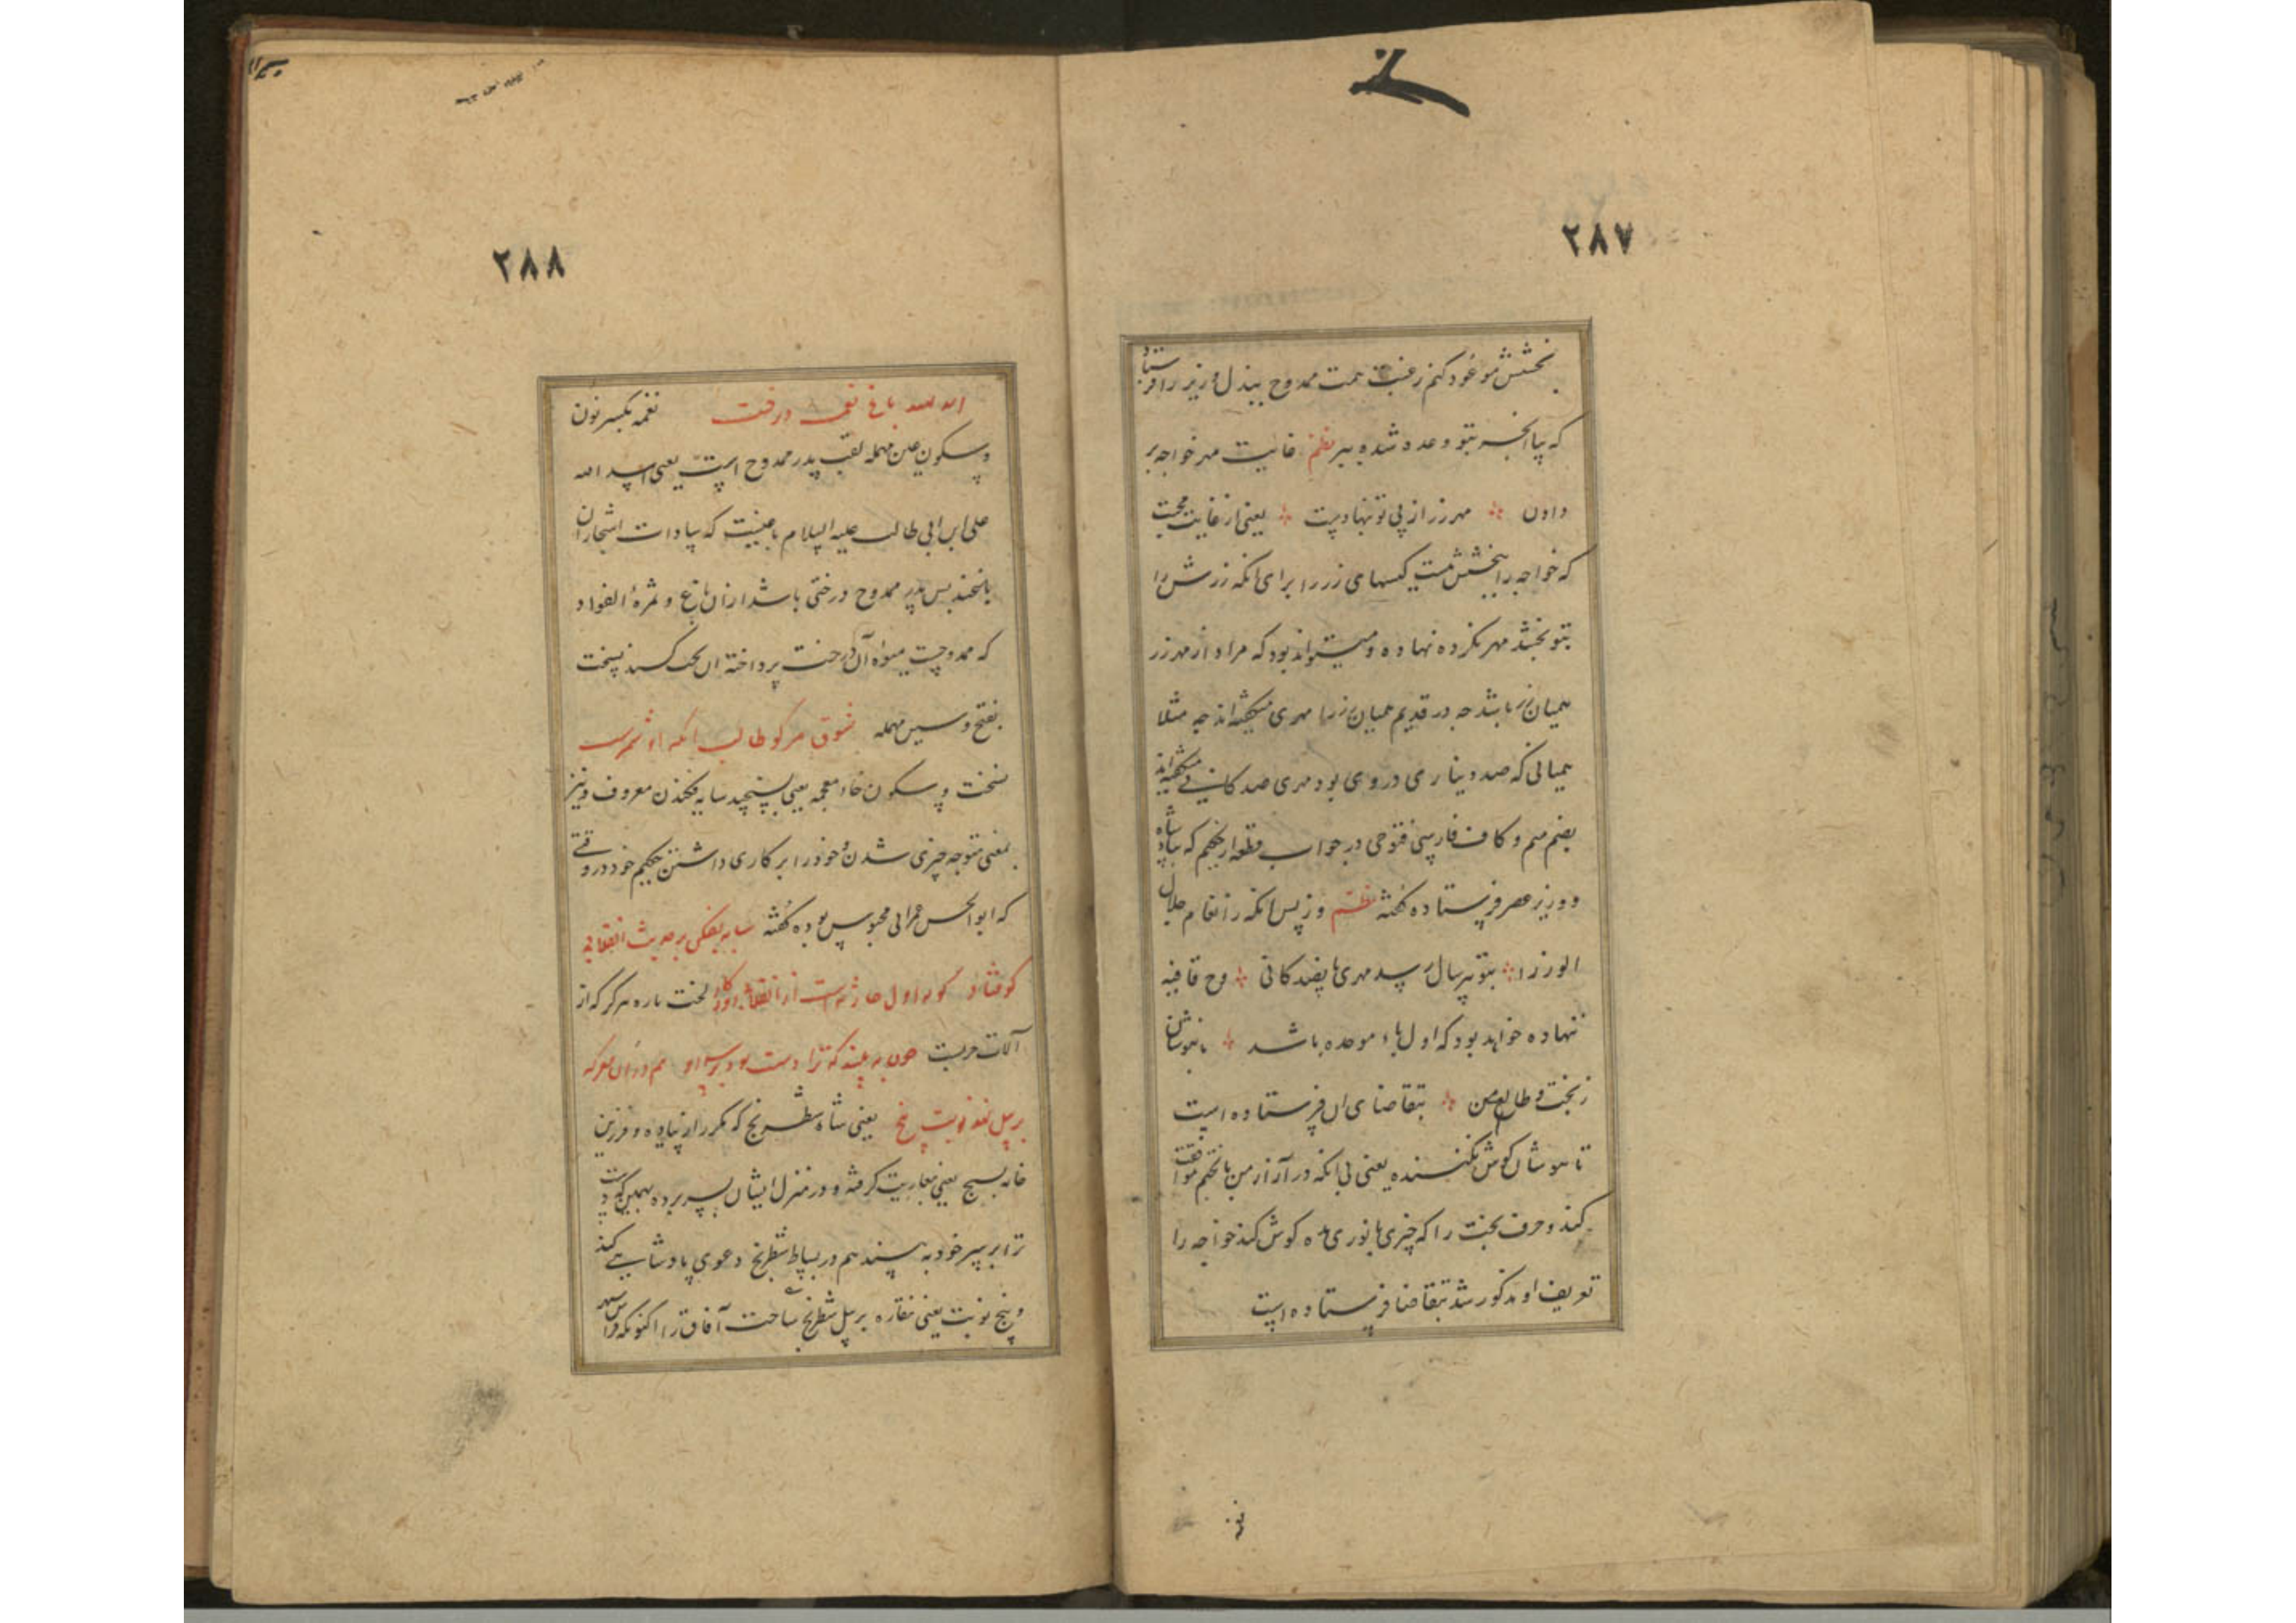 ۲۸۷
بخشش موعود کنم رغبت همت ممدوح ببذل وزیر را فرستاد
که بیا انچه بتو وعده شده ببر نظم غایت مهر خواجه بر
دادن مهر زر از پی تو ننهادست یعنی از غایت محبت
که خواجه را ببخشش تست کیسهای زر را برای انکه زرش را
بتو بخشد مهر نکرده نهاده و میتواند بود که مراد از مهر زر
همیان زر باشد چه در قدیم همیان زر را مهری میگفته‌اند چه مثلا
همیانی که صد دیناری در وی بود مهری صد کانی میگفته‌اند
بضم میم و کاف فارسی فتوحی در جواب قطعه از حکیم که بپادشاه
و وزیر عصر فرستاده گفته نظم وز پس انکه ز انعام جلال
الوزرا بتو هر سال رسد مهری پانصد کانی وح قافیه
نهاده خواهد بود که اول باء موحده باشد
ز بخت و طالع من بتقاضای ان فرستاده است
گوش نکنند یعنی بی انکه در آزار من با بختم موافقت
کند و حرف بخت را که چیزی بانوری مده گوش کند خواجه را
تعریف او مذکور شد بتقاضا فرستاده است
۲۸۸
باغ درخت نغمه بکسر نون
و سکون عین مهمله لقب پدر ممدوح است یعنی اسد الله
علی ابن ابی طالب علیه السلام باغیست که سادات اشجار آن
باغند پس پدر ممدوح درختی باشد ازان باغ و ثمرة الفواد
که ممدوحست میوه آن درخت پرداخته ان نسخت
بفتح و سین مهمله شوق مرکو طالب
سخت و سکون خاء معجمه یعنی بسنجید سایه فکندن معروف و نیز
بمعنی متوجه چیزی شدن و خود را بر کاری داشتن حکیم خود در وقتی
که ابوالحسن عمرانی محبوس بوده گفته سایه بفکن بر حدیث انقلابی
کوفتاد لخت باره سرگرز که از
آلات حربست چون به بیند که ترا دست بود بر سر او هم دران معرکه
بر پیل نهد نوبت پنج یعنی شاه شطرنج که مکرر از پیاده و فرزین
خانه بسیج یعنی بعاریت گرفته و در منزل ایشان بسر برده
ترا بر سر خود به بیند هم در بساط شطرنج دعوی پادشاهی کند
و پنج نوبت یعنی نقاره بر پیل شطرنج ساحت آفاق را اکنونکه فراش سپهر